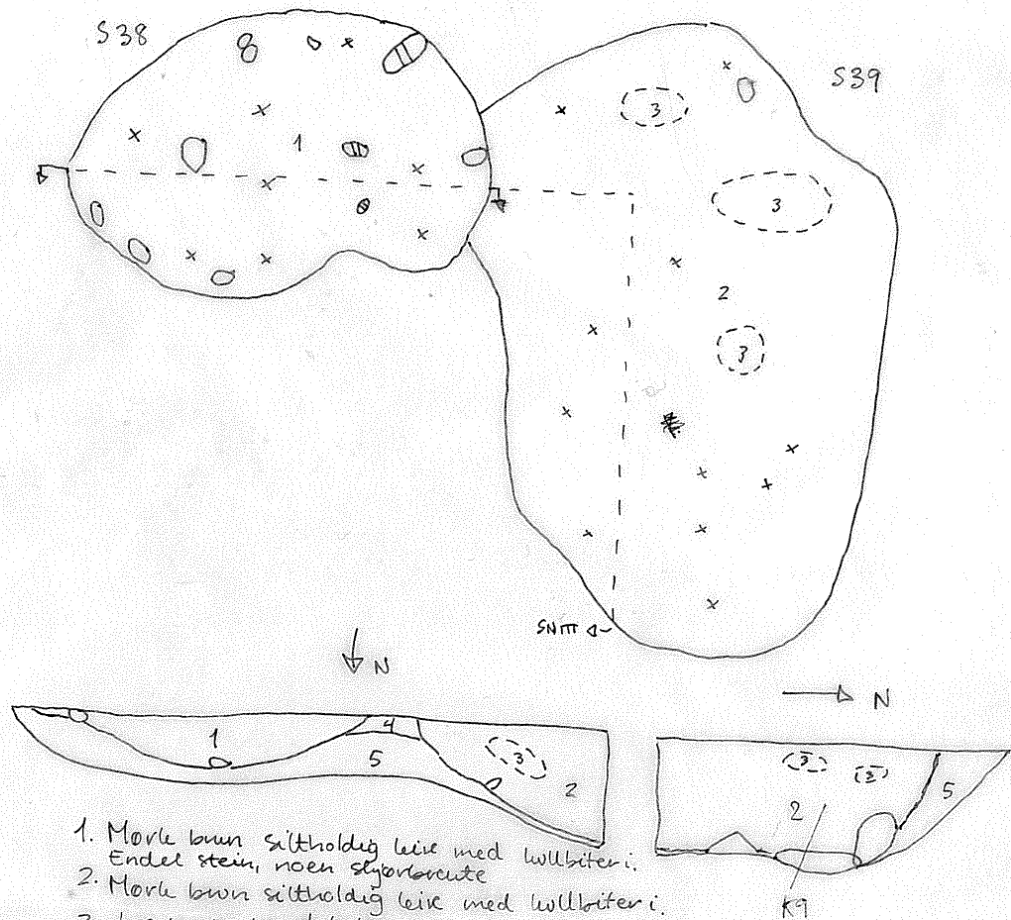 S38
S39
3
1
3
2
3
SNITT
N
N
1
4
5
3
2
3
3
2
5
K9
1. Mørk brun siltholdig leire med kullbiter i.
Endel stein, noen skjørbrente
2. Mørk brun siltholdig leire med kullbiter i.
3.